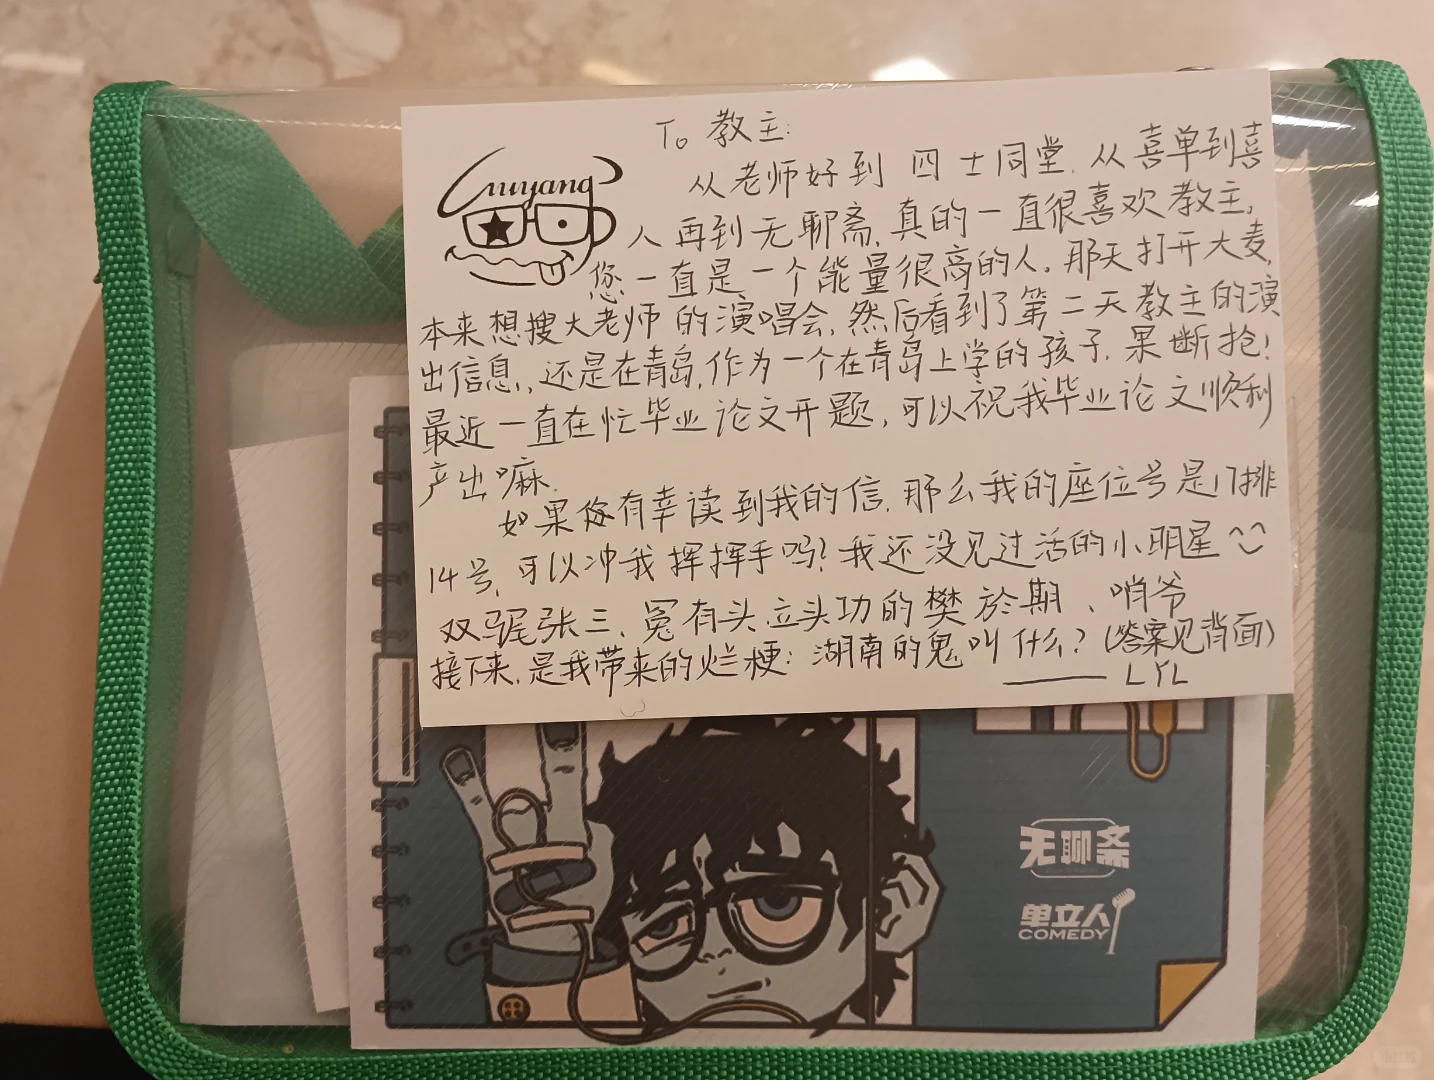 To 教主:
从老师好到 四士同堂,从喜单到喜
人再到无聊斋,真的一直很喜欢教主,
您一直是一个能量很高的人。那天打开大麦,
本来想搜大老师的演唱会,然后看到了第二天教主的演
出信息,还是在青岛,作为一个在青岛上学的孩子,果断抢!
最近一直在忙毕业论文开题,可以祝我毕业论文顺利
产出嘛。
如果您有幸读到我的信,那么我的座位号是17排
14号,可以冲我挥挥手吗?我还没见过活的小明星^^
双骄张三、冤有头立头功的樊於期、哨爷
接下来,是我带来的烂梗:湖南的鬼叫什么?(答案见背面)
—— LYL
liuyang
无聊斋
单立人
COMEDY